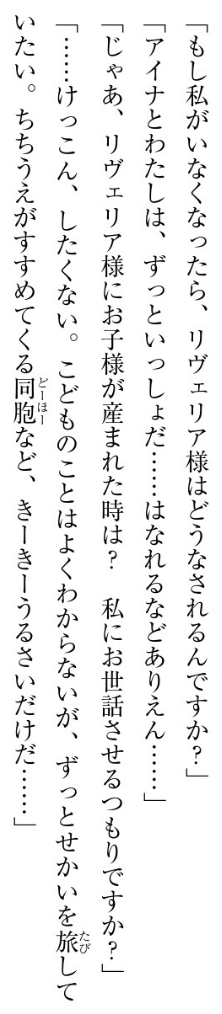 「もし私がいなくなったら、リヴェリア様はどうなされるんですか？」
「アイナとわたしは、ずっといっしょだ……はなれるなどありえん……」
「じゃあ、リヴェリア様にお子様が産まれた時は？　私にお世話させるつもりですか？」
「……けっこん、したくない。こどものことはよくわからないが、ずっとせかいを旅（たび）して
いたい。ちちうえがすすめてくる同胞（どーほー）など、きーきーうるさいだけだ……」